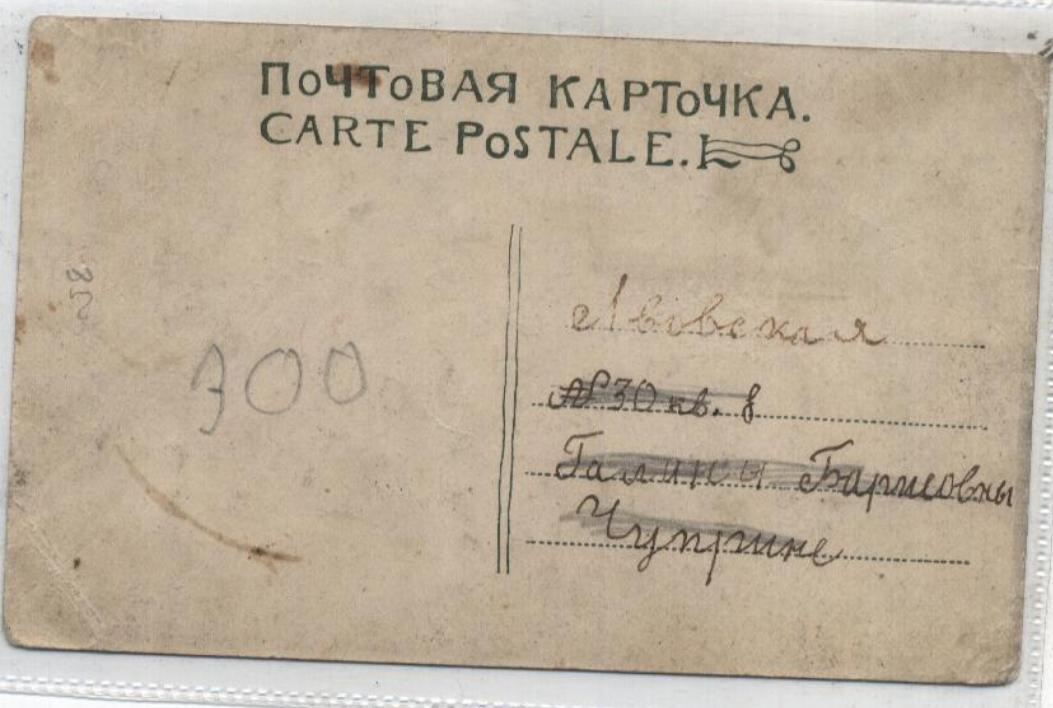 ПОЧТОВАЯ КАРТОЧКА.
CARTE POSTALE.
Львовская
№ 30 кв. 8
Галины Барисовны
Чуприне
300